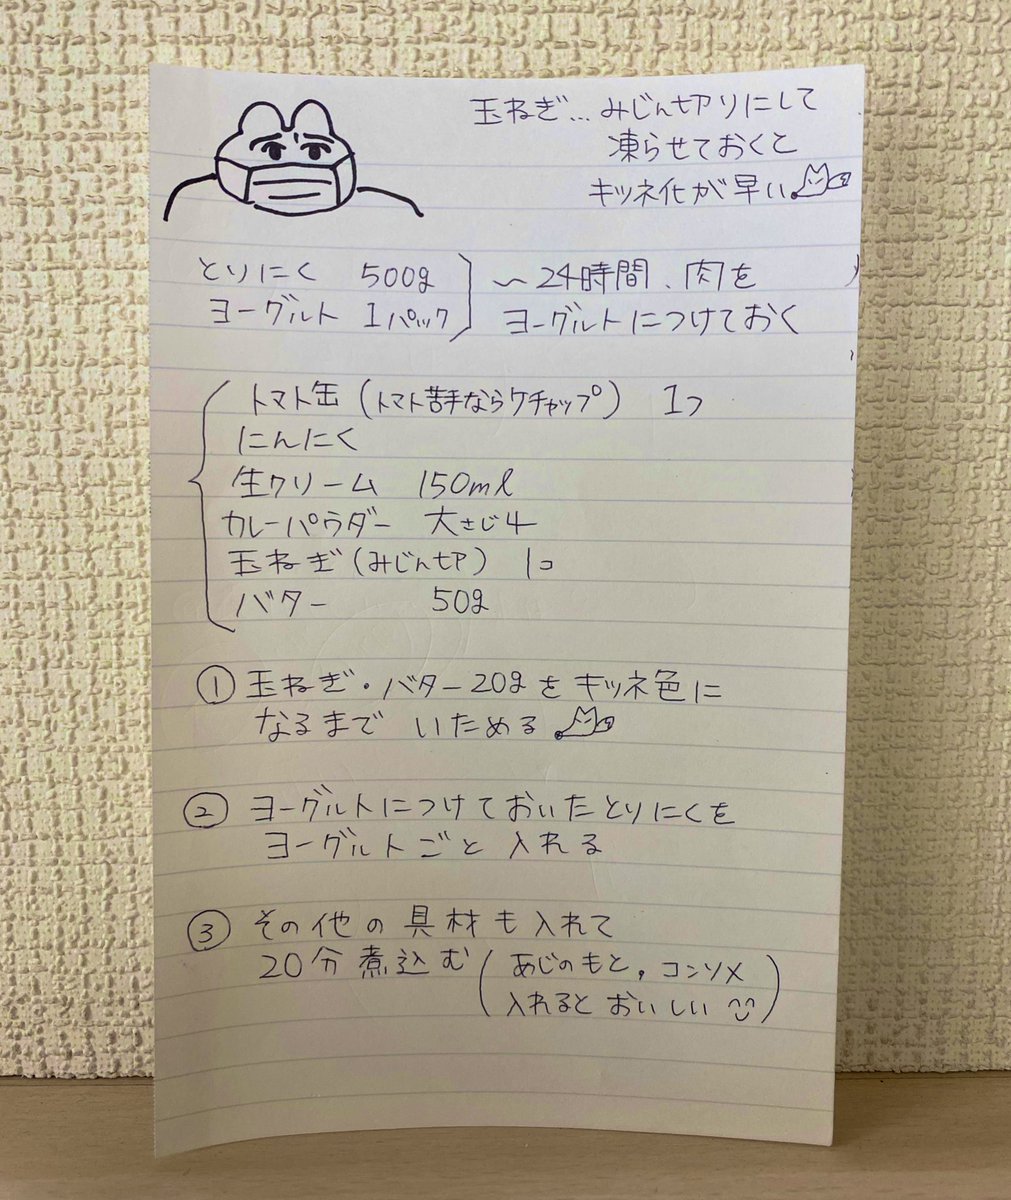 玉ねぎ…みじん切りにして
凍らせておくと
キツネ化が早い
とりにく 500g
ヨーグルト 1パック
〜24時間、肉を
ヨーグルトにつけておく
トマト缶(トマト苦手ならケチャップ) 1つ
にんにく
生クリーム 150ml
カレーパウダー 大さじ4
玉ねぎ(みじん切り) 1コ
バター 50g
① 玉ねぎ・バター20gをキツネ色に
なるまで いためる
② ヨーグルトにつけておいたとりにくを
ヨーグルトごと 入れる
③ その他の具材も入れて
20分煮込む
(あじのもと,コンソメ
入れると おいしい)